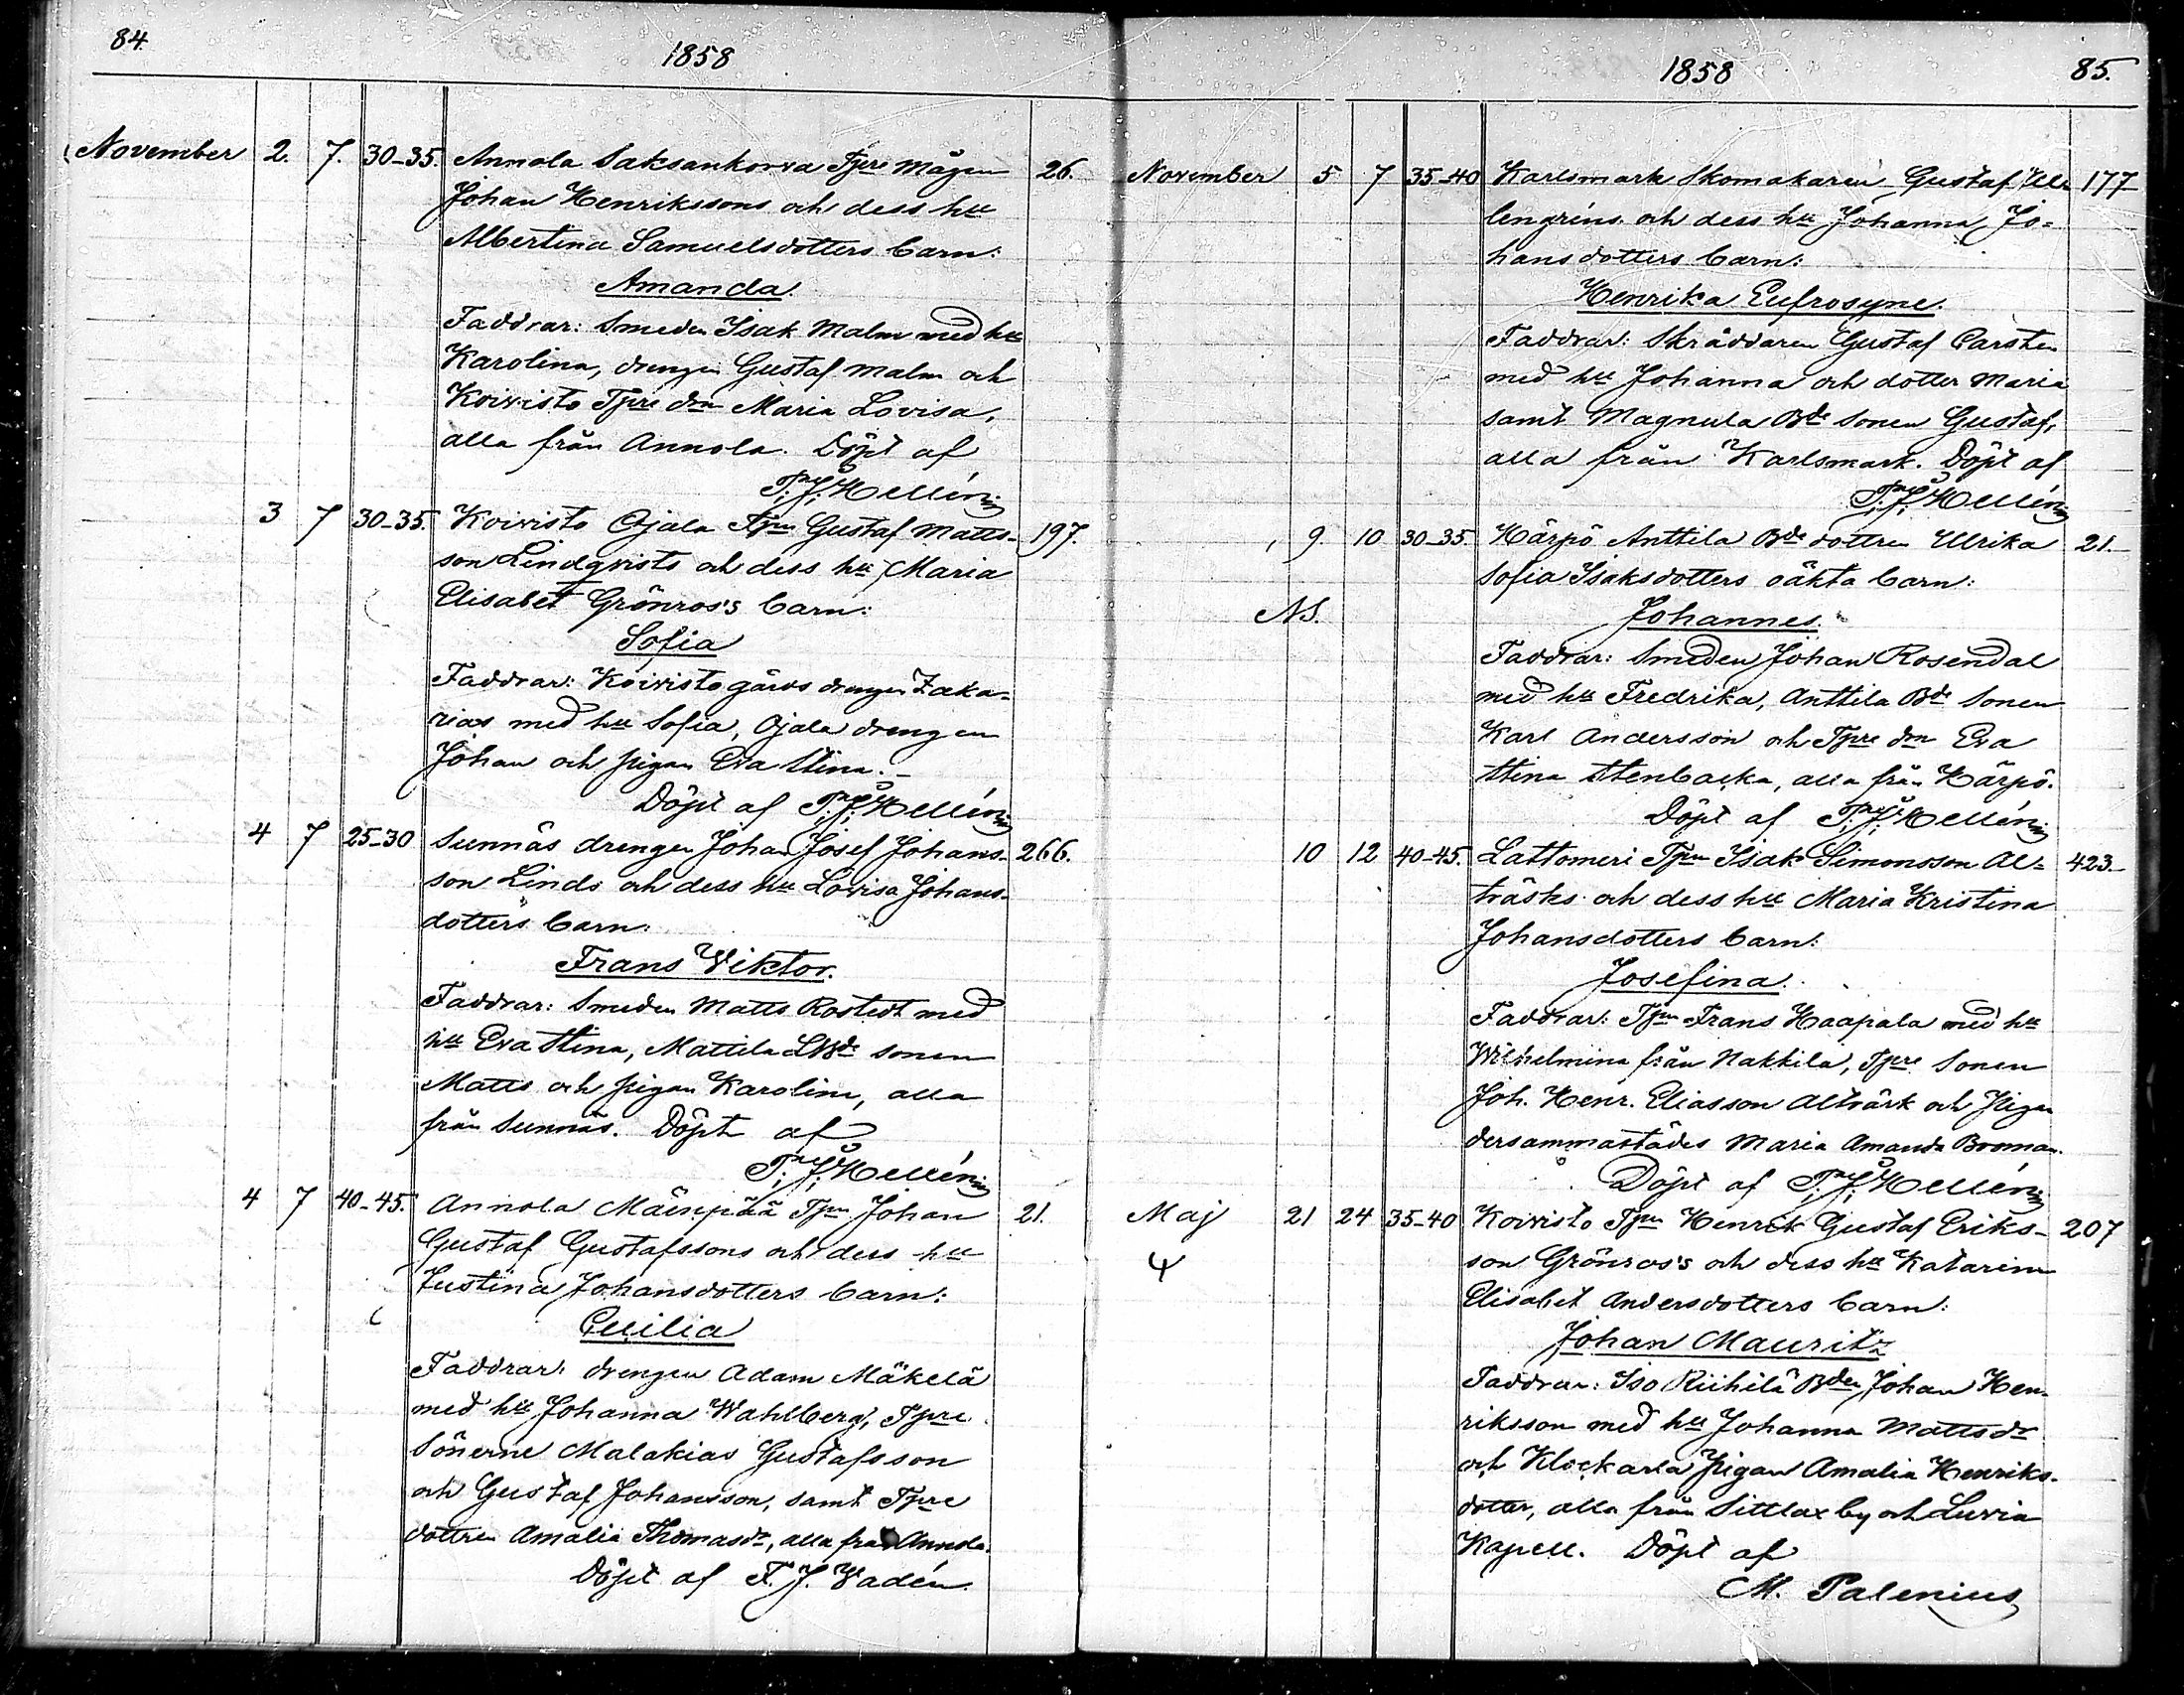 84.
1858
November 2. 7. 30-35. Annola Saksankorva Tpre mågen 26.
Johan Henrikssons och dess hu
Albertina Samuelsdotters barn:
Amanda.
Faddrar: Smeden Isak Malm med hu
Karolina, drengen Gustaf Malm och
Koivisto Tpre dn Maria Lovisa,
alla från Annola. Döpt af
Hellén
3 7 30-35. Koivisto Ojala Tpn Gustaf Matts- 197.
son Lindqvists och dess hu Maria
Elisabet Grönros's barn:
Sofia
Faddrar: Koivisto gårds drengen Zaka-
rias med hu Sofia, Ojala drengen
Johan och pigan Eva Stina.
Döpt af Hellén
4 7 25-30 Sunnäs drengen Johan Josef Johans- 266.
son Linds och dess hu Lovisa Johans-
dotters barn:
Frans Viktor.
Faddrar: Smeden Matts Rostedt med
hu Eva Stina, Mattila sonen
Matts och pigan Karolina, alla
från Sunnäs. Döpt af
Hellén
4 7 40-45. Annola Mäenpää Tpn Johan 21.
Gustaf Gustafssons och dess hu
Justina Johansdotters barn:
Cecilia
Faddrar: drengen Adam Mäkelä
med hu Johanna Wahlberg, Tpre
Sönerne Malakias Gustafsson
och Gustaf Johansson, samt Tpre
dottren Amalia Thomasdr, alla från Annola.
Döpt af F. J. Vadén.
1858
85.
November 5 7 35-40 Karlsmark Skomakaren Gustaf Ul- 177
lengrens och dess hu Johanna Jo-
hansdotters barn:
Henrika Eufrosyne.
Faddrar: Skräddaren Gustaf Carsten
med hu Johanna och dotter Maria
samt Magnula Bde sonen Gustaf,
alla från Karlsmark. Döpt af
Hellén
9 10 30-35. Härpö Anttila Bde dottren Ulrika 21.
Sofia Isaksdotters oäkta barn:
NB. Johannes.
Faddrar: Smeden Johan Rosendal
med hu Fredrika, Anttila Bde Sonen
Karl Andersson och Tpre dn Eva
Stina Stenbacka, alla från Härpö.
Döpt af Hellén
10 12 40-45. Lattomeri Tpn Isak Simonsson Al- 423.
träsks och dess hu Maria Kristina
Johansdotters barn:
Josefina.
Faddrar: Tpn Frans Haapala med hu
Wilhelmina från Nakkila, Tpre Sonen
Joh. Henr. Eliasson och Pigan
dersammastädes Maria Amanda Boman.
Döpt af Hellén
Maj 21 24 35-40 Koivisto Tpn Henrik Gustaf Eriks- 207
son Grönros's och dess hu Katarina
Elisabet Andersdotters barn:
Johan Mauritz
Faddrar: Iso Riihilä Bden Johan Hen-
riksson med hu Johanna Mattsdr
och Klockarla Pigan Amalia Henriks-
dotter, alla från Sittlax by och Luvia
Kapell. Döpt af
M. Palenius